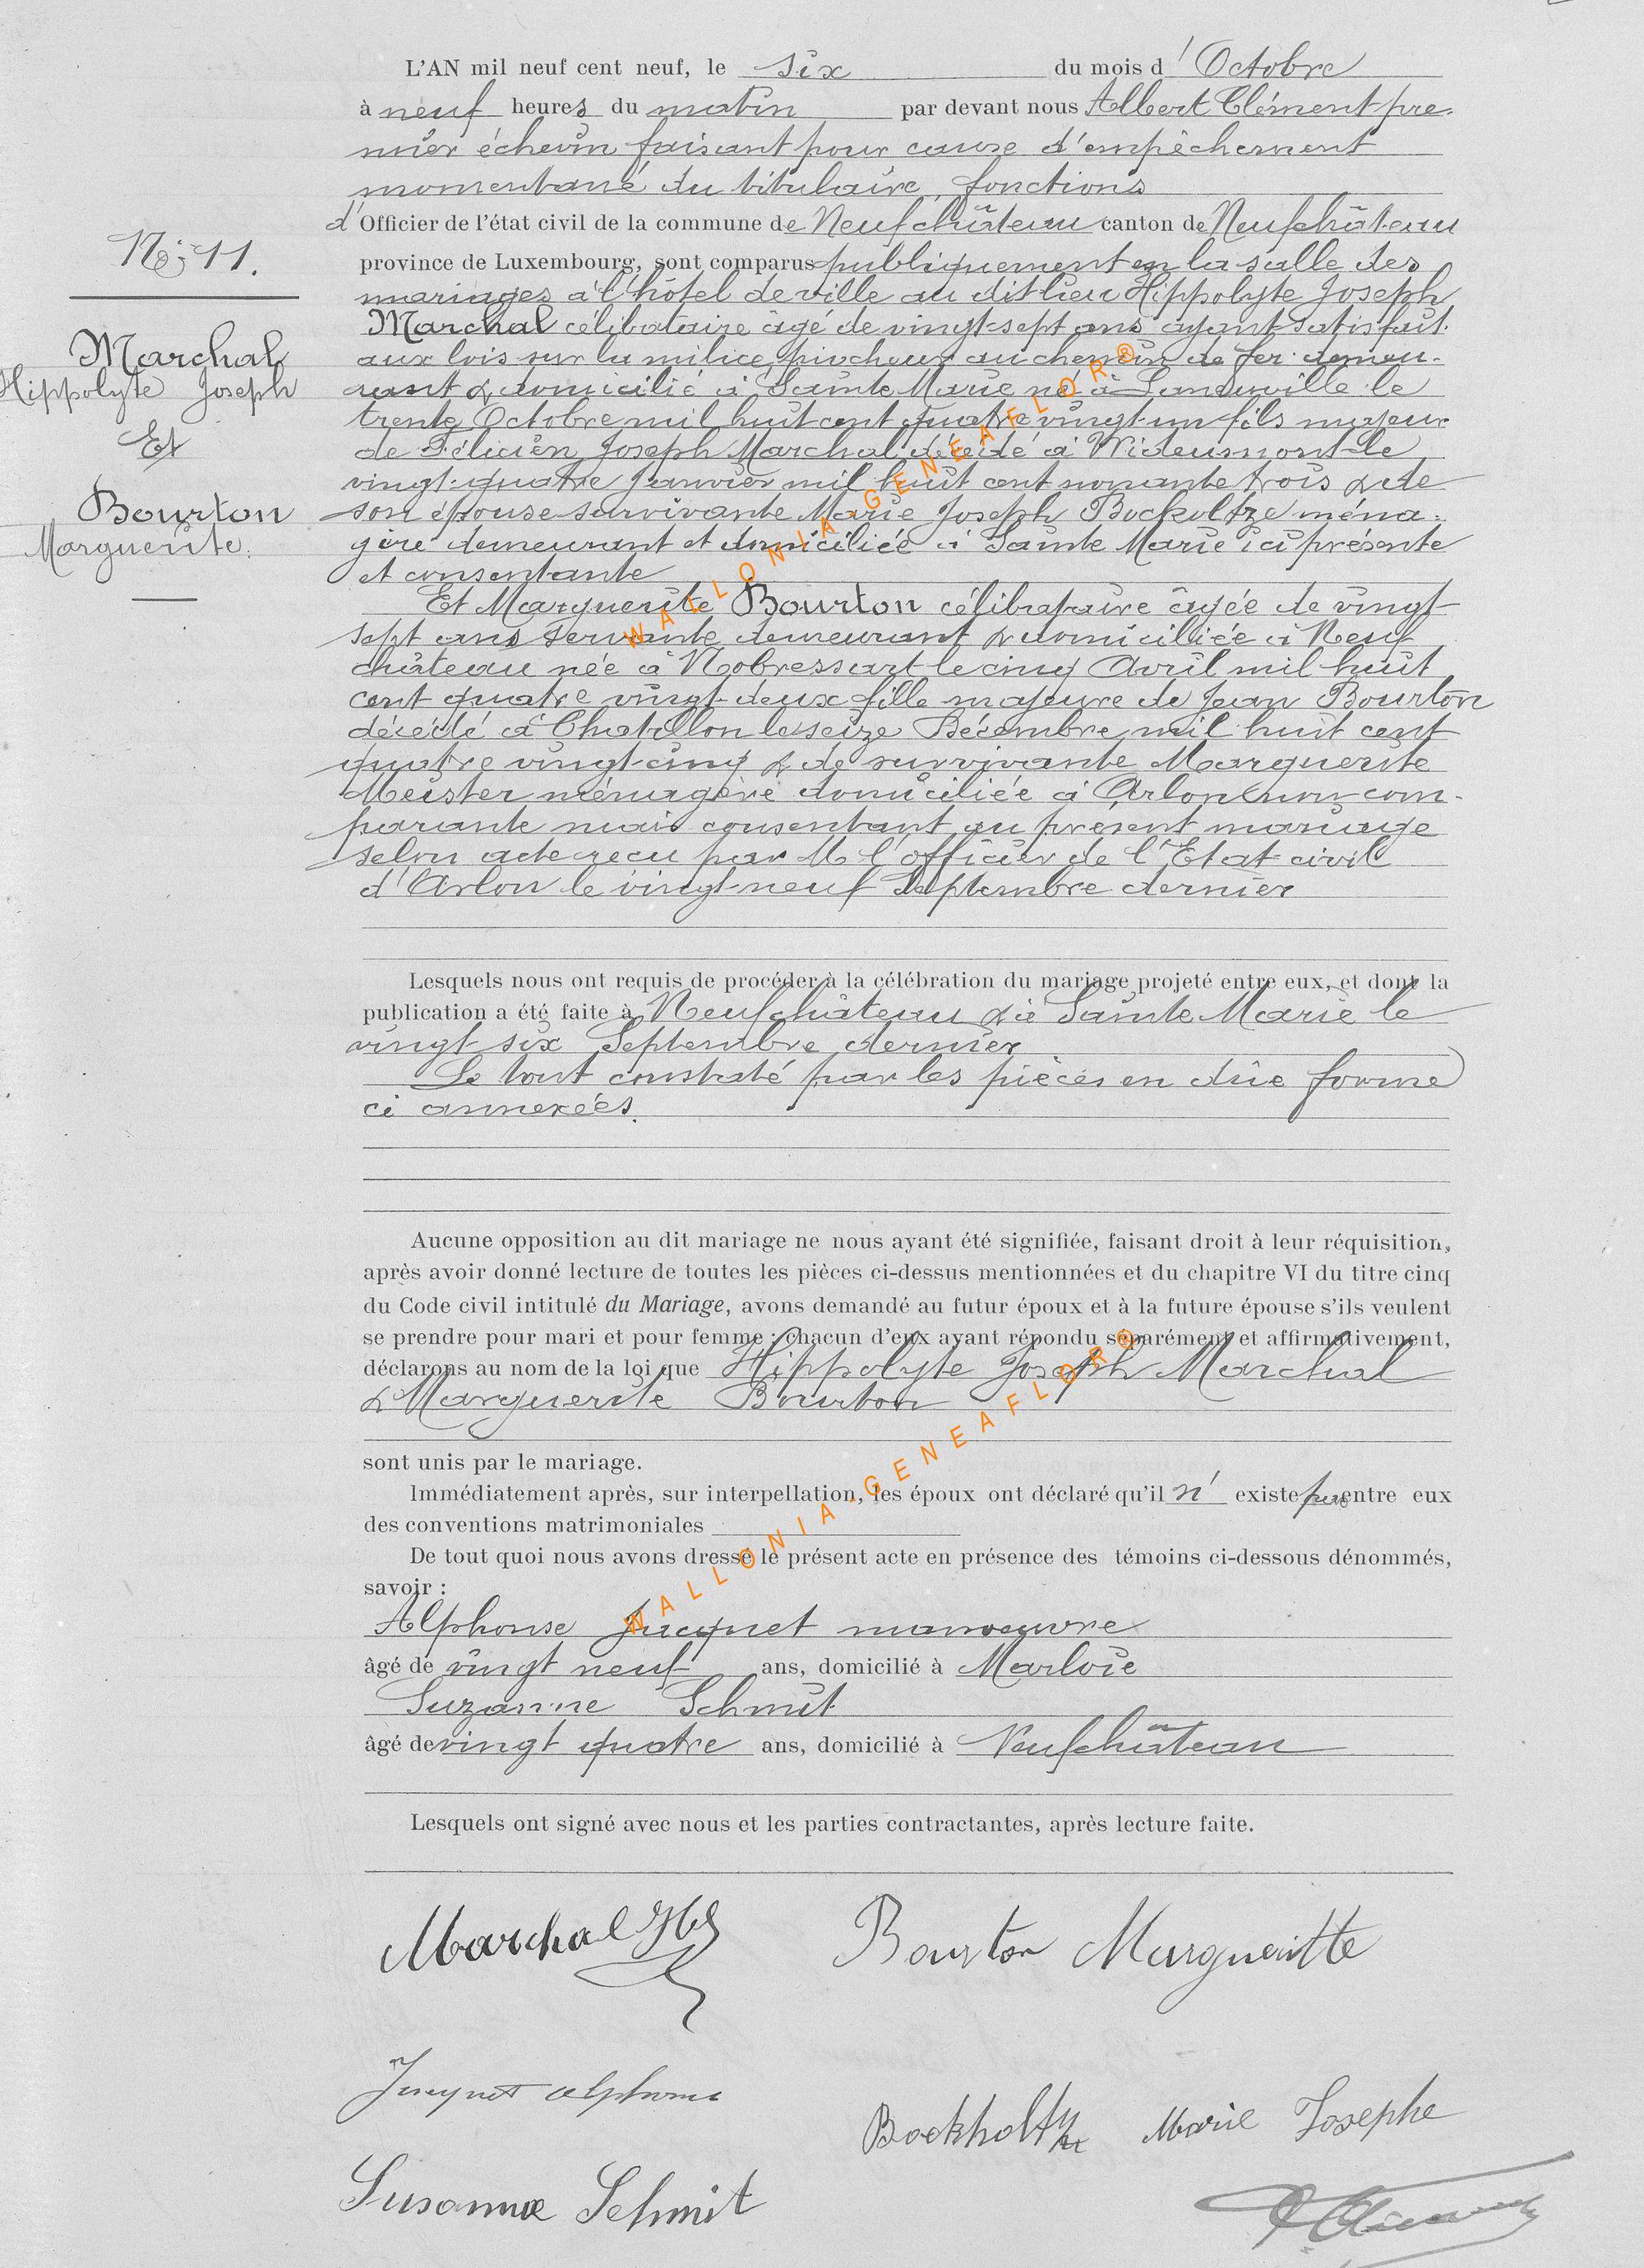 L'AN mil neuf cent neuf, le six du mois d'Octobre
à neuf heures du matin par devant nous Albert Clément pre-
mier échevin faisant pour cause d'empêchement
momentané du titulaire, fonctions
d'Officier de l'état civil de la commune de Neufchâteau canton de Neufchâteau
province de Luxembourg, sont comparus publiquement en la salle des
mariages à l'hôtel de ville au dit lieu Hippolyte Joseph
Marchal célibataire âgé de vingt-sept ans ayant satisfait
aux lois sur la milice, piocheur au chemin de fer demeu-
rant & domicilié à Sainte Marie né à Laneuville le
trente Octobre mil huit cent quatre vingt-un fils majeur
de Félicien Joseph Marchal décédé à Wideumont le
vingt-quatre Janvier mil huit cent nonante trois & de
son épouse survivante Marie Joseph Bockoltze ména-
gère demeurant et domiciliée à Sainte Marie ici présente
et consentante
Et Marguerite Bourton célibataire âgée de vingt
sept ans servante demeurant & domiciliée à Neuf-
château née à Nobressart le cinq Avril mil huit
cent quatre vingt-deux fille majeure de Jean Bourton
décédé à Chatillon le seize Décembre mil huit cent
quatre vingt-cinq & de survivante Marguerite
Meister ménagère domiciliée à Arlon non com-
parante mais consentant au présent mariage
selon acte recu par M l'officier de l'Etat civil
d'Arlon le vingt-neuf Septembre dernier
N° 11.
Marchal
Hippolyte Joseph
Et
Bourton
Marguerite.
Lesquels nous ont requis de procéder à la célébration du mariage projeté entre eux, et dont la
publication a été faite à Neufchâteau & à Sainte Marie le
vingt six Septembre dernier
Le tout constaté par les pièces en dûe forme
ci annexées.
Aucune opposition au dit mariage ne nous ayant été signifiée, faisant droit à leur réquisition,
après avoir donné lecture de toutes les pièces ci-dessus mentionnées et du chapitre VI du titre cinq
du Code civil intitulé du Mariage, avons demandé au futur époux et à la future épouse s'ils veulent
se prendre pour mari et pour femme ; chacun d'eux ayant répondu séparément et affirmativement,
déclarons au nom de la loi que Hippolyte Joseph Marchal
& Marguerite Bourton
sont unis par le mariage.
Immédiatement après, sur interpellation, les époux ont déclaré qu'il n' existe pas entre eux
des conventions matrimoniales
De tout quoi nous avons dressé le présent acte en présence des témoins ci-dessous dénommés,
savoir :
Alphonse Jacquet manoeuvre
âgé de vingt neuf ans, domicilié à Marloie
Suzanne Schmit
âgé de vingt quatre ans, domicilié à Neufchâteau
Lesquels ont signé avec nous et les parties contractantes, après lecture faite.
Marchal
Bourton Margueritte
Jacquet alphonse
Bockholtz Marie Josephe
Susanna Schmit
WALLONIA-GENEAFLOR®
WALLONIA-GENEAFLOR®